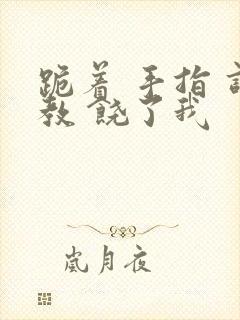 跪着 手指 
教 饶了我
岚月夜